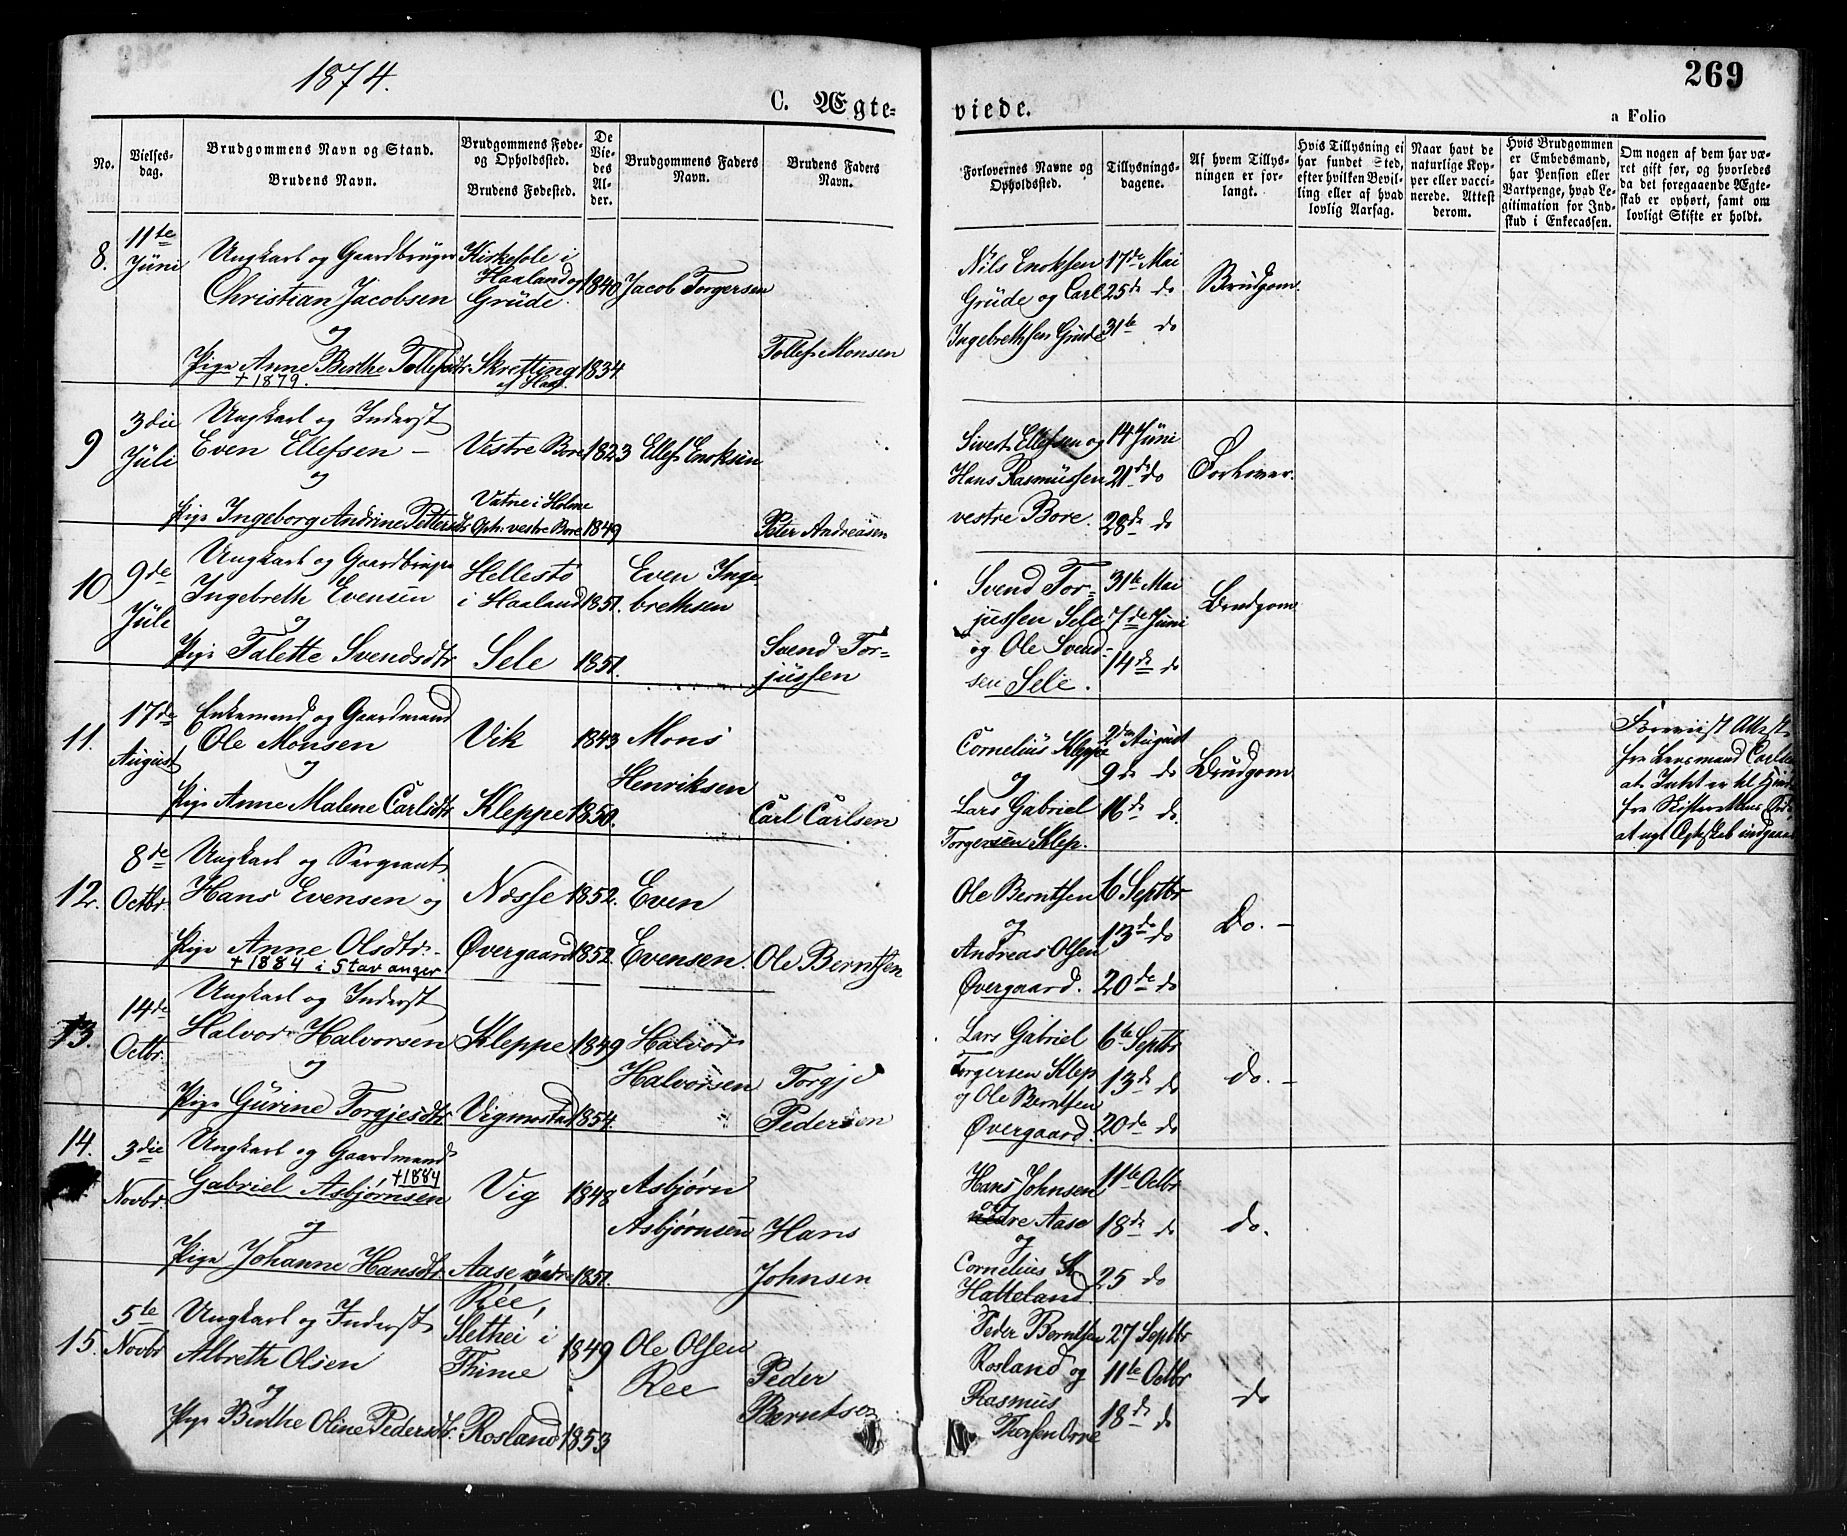 1874.
269
C. Ægteviede.
a Folio
No.
Vielsesdag.
Brudgommens Navn og Stand.
Brudens Navn.
Brudgommens Føde- og Opholdssted.
Brudens Fødested.
De Viedes Alder.
Brudgommens Faders Navn.
Brudens Faders Navn.
Forlovernes Navne og Opholdssted.
Tillysningsdagene.
Af hvem Tillysningen er forlangt.
Hvis Tillysning ei har fundet Sted, efter hvilken Bevilling eller af hvad lovlig Aarsag.
Naar havt de naturlige Kopper eller vaccinerede. Attest derom.
Hvis Brudgommen er Embedsmand, har Pension eller Vartpenge, hvad Legitimation for Indskud i Enkecassen.
Om nogen af dem har været gift før, og hvorledes da det foregaaende Ægteskab er ophørt, samt om lovligt Skifte er holdt.
8.
11te Juni
Ungkarl og Gaardbruger
Christian Jacobsen
og
Pige Anne Berthe Tollefsdtr
+ 1879.
Kiskesole i
Haaland og
Grude.
Skretting
1840
1834
Jacob Torgersen
Tollef Monsen
Nils Enoksen
Grude og Carl
Ingebrethsen Grude
17de Mai
25de do
31te do
Brudgom.
9
3die Juli
Ungkarl og Inderst
Even Ellefsen –
og
Pige Ingeborg Andrine Pettersdtr
Vestre Bore
Vatne i Holme
Oph. vestre Bore
1823
1849
Ellef Enoksen
Peter Andreasen
Sivert Ellefsen og
Hans Rasmussen
vestre Bore.
14 Juni
21de do
28de do
Forlover.
10
9de Juli
Ungkarl og Gaardbruger
Ingebreth Evensen
og
Pige Talette Svendsdtr
Hellestø
i Haaland
Sele
1851.
1851.
Even Ingebrethsen
Svend Torjussen
Svend Torjussen Sele
og Ole Svendsen Sele.
31te Mai
7de Juni
14de do
Brudgom
11.
17de August
Enkemand og Gaardmand
Ole Monsen
og
Pige Anne Malene Carlsdtr
Vik
Kleppe
1843
1850.
Mons
Henriksen
Carl Carlsen
Cornelius Kleppe
og
Lars Gabriel
Torgersen Klep.
2den August
9de do
16de do.
Brudgom
Foreviist Attest
fra Lensmand
at Intet er til Hinder
fra Skifterettens Side
at nyt Ægteskab indgaaes
12.
8de Octbr.
Ungkarl og Sergeant
Hans Evensen og
Pige Anne Olsdtr. –
+ 1884 i Stavanger
Næsse
Øvergaard
1852.
1852.
Even
Evensen.
Ole Berntsen
Ole Berntsen
og
Andreas Olsen
Øvergaard.
6 Septbr
13de do
20de do
Do. –
13.
14de Octbr.
Ungkarl og Inderst
Halvor Halvorsen
og
Pige Gurine Torgjesdtr.
Kleppe
Vigmostad
1849
1854.
Halvor
Halvorsen
Torgje
Pedersen
Lars Gabriel
Torgersen Klep
og Ole Berntsen
Øvergaard.
6te Septbr
13de do
20de do
do. –
14.
3die Novbr.
Ungkarl og Gaardmand
+1884
Gabriel Asbjørnsen
og
Pige Johanne Hansdtr.
Vig
Aase
1848
1851.
Asbjørn
Asbjørnsen
Hans
Johnsen
Hans Johnsen
Aase
og
Cornelius
Hatteland.
11te Octbr
18de do
25 do
do.
15.
5te Novbr
Ungkarl og Inderst
Albreth Olsen
og
Pige Berthe Oline Pedersdtr.
Rée,
Slethei i
Thime
Rosland
1849
1853
Ole Olsen
Ree
Peder
Berntsen
Peder Berntsen
Rosland og
Rasmus
Thorsen Orre
27 Septbr
11te Octbr
18de do
do